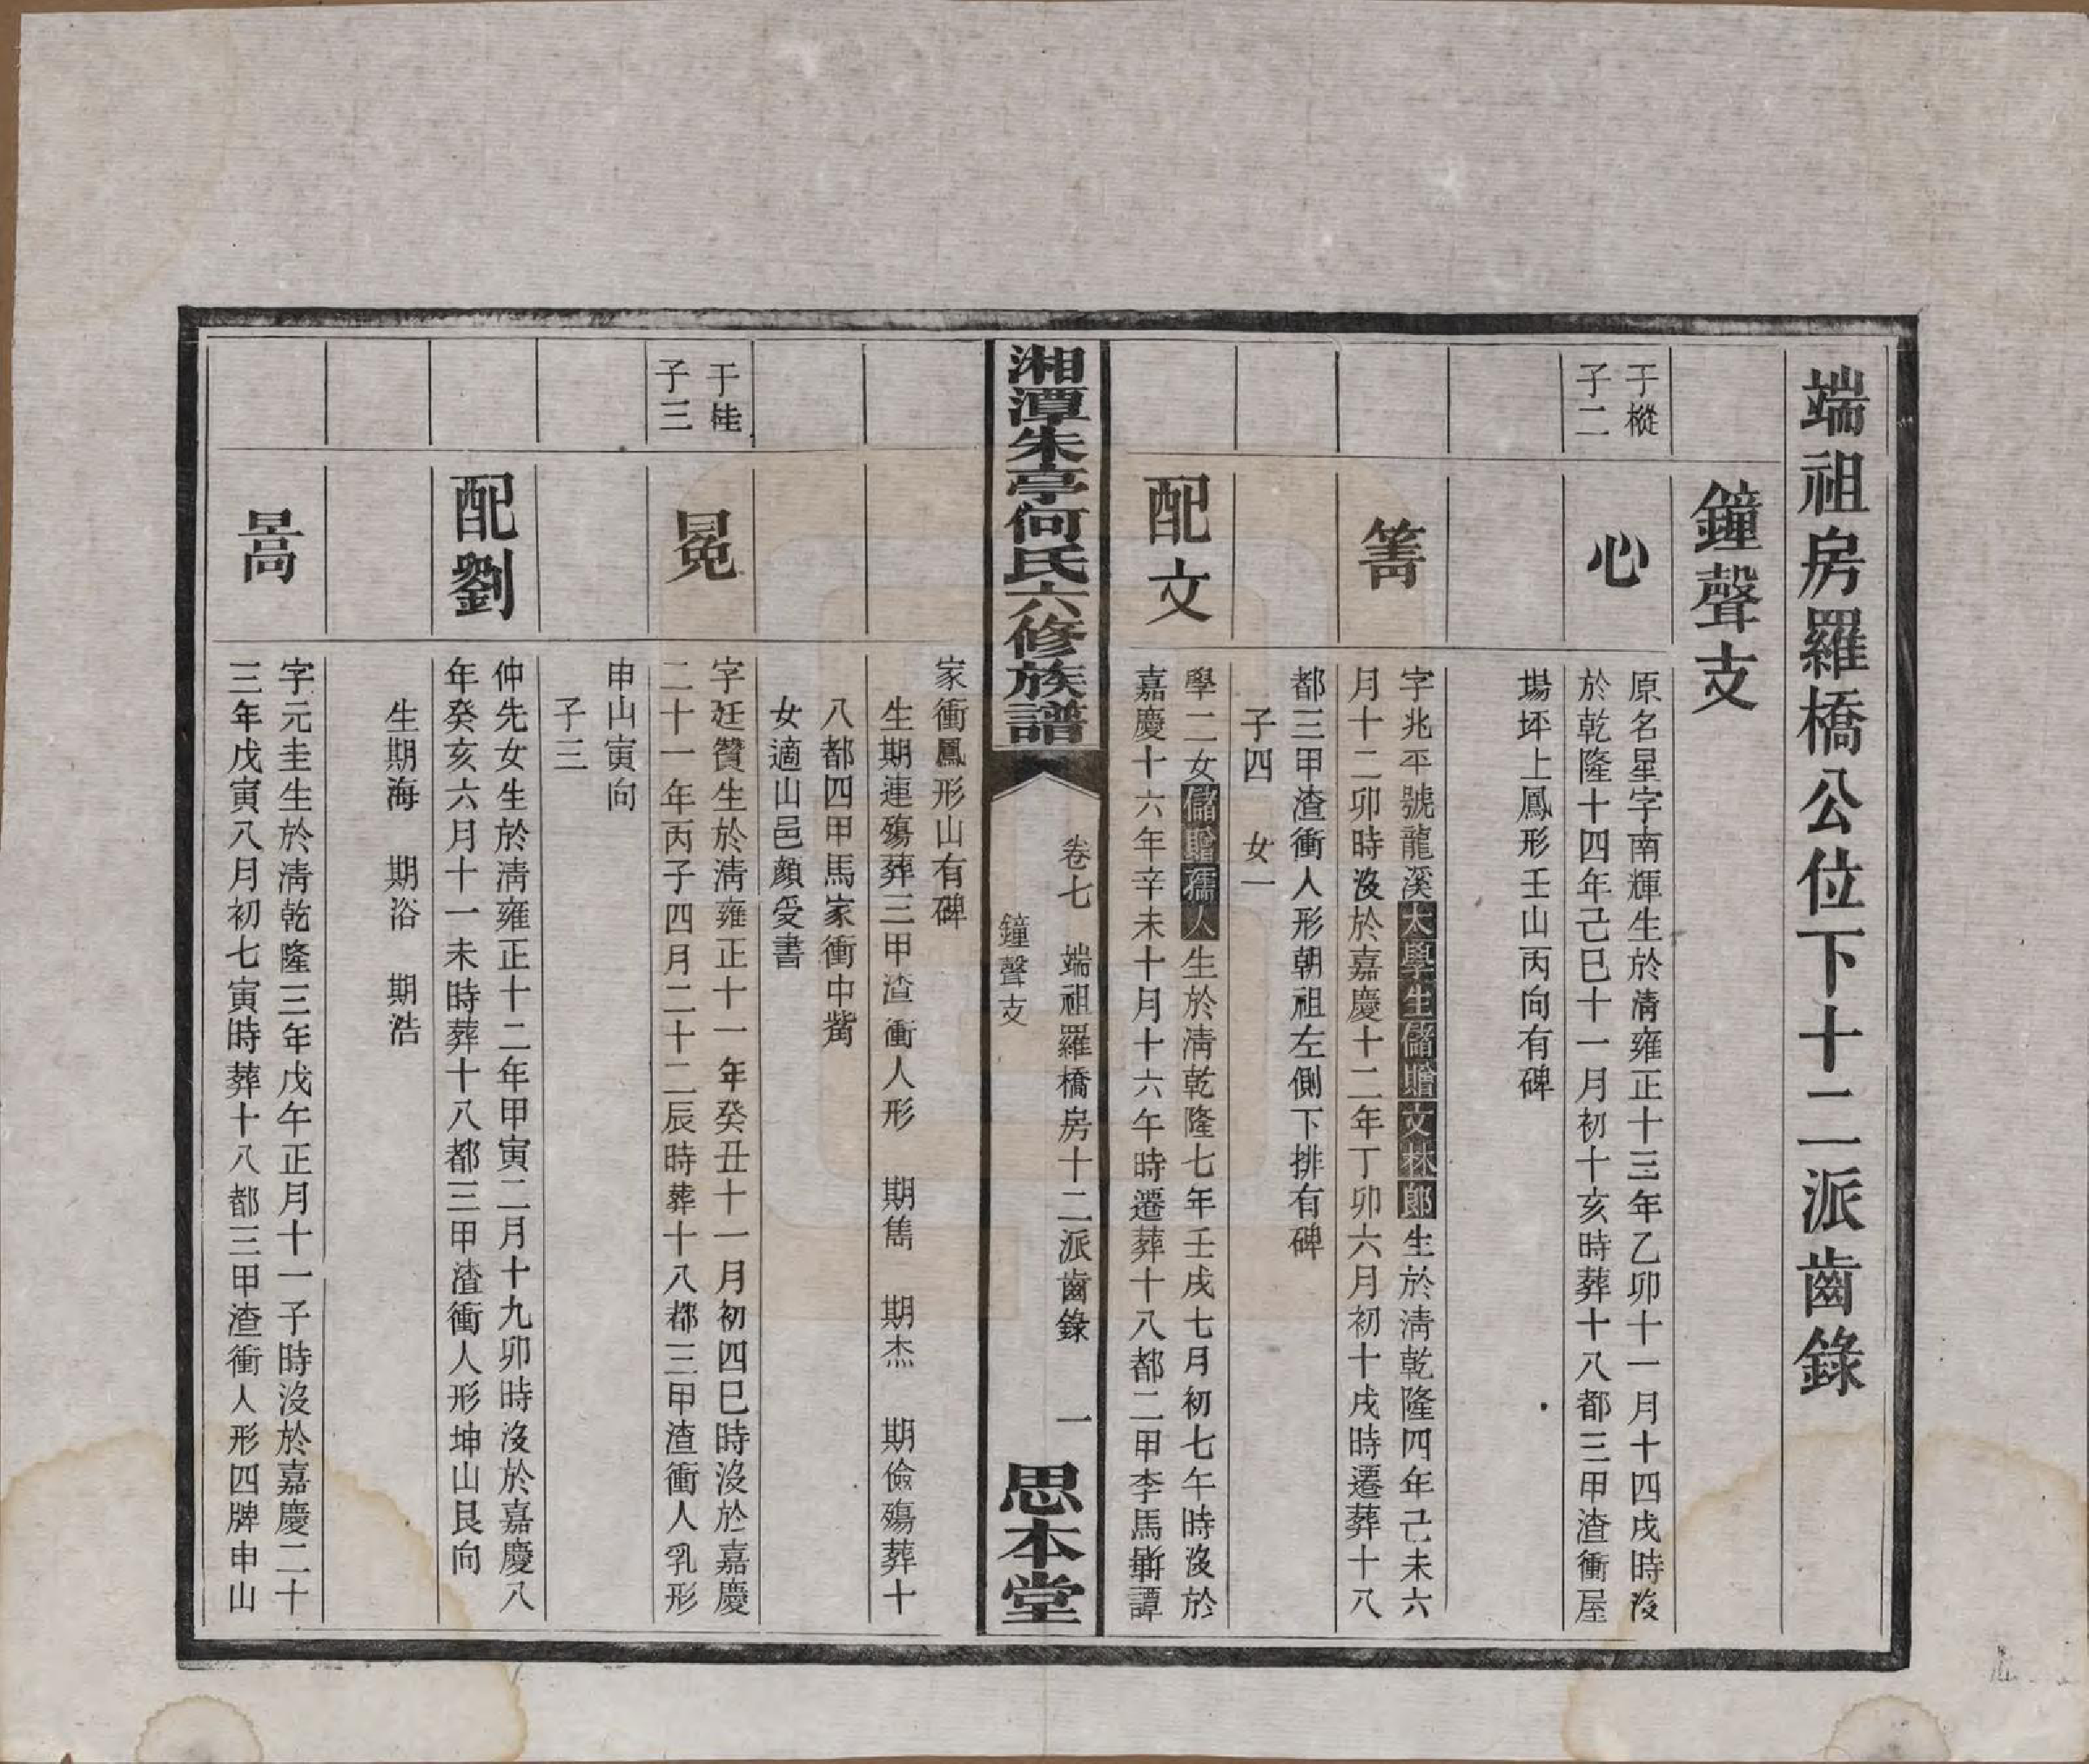 端祖房羅橋公位下十二派齒錄
鐘聲支
于樅
子二
心
原名星字南輝生於淸雍正十三年乙卯十一月十四戌時沒
於乾隆十四年己巳十一月初十亥時葬十八都三甲渣衝屋
場坪上鳳形壬山丙向有碑
字兆平號龍溪太學生儲贈文林郞生於淸乾隆四年己未六
月十二卯時沒於嘉慶十二年丁卯六月初十戌時遷葬十八
都三甲渣衝人形朝祖左側下排有碑
子四 女一
配文
學二女儲贈孺人生於淸乾隆七年壬戌七月初七午時沒於
嘉慶十六年辛未十月十六午時遷葬十八都二甲李馬衝譚
湘潭朱亭何氏六修族譜
卷七 端祖羅橋房十二派齒錄 一
鐘聲支
思本堂
家衝鳳形山有碑
生期連殤葬三甲渣衝人形 期雋 期杰 期儉殤葬十
八都四甲馬家衝中嘴
女適山邑顏受書
于桂
子三
冕
字廷贊生於淸雍正十一年癸丑十一月初四巳時沒於嘉慶
二十一年丙子四月二十二辰時葬十八都三甲渣衝人乳形
申山寅向
子三
配劉
仲先女生於淸雍正十二年甲寅二月十九卯時沒於嘉慶八
年癸亥六月十一未時葬十八都三甲渣衝人形坤山艮向
生期海 期浴 期浩
暠
字元圭生於淸乾隆三年戊午正月十一子時沒於嘉慶二十
三年戊寅八月初七寅時葬十八都三甲渣衝人形四牌申山